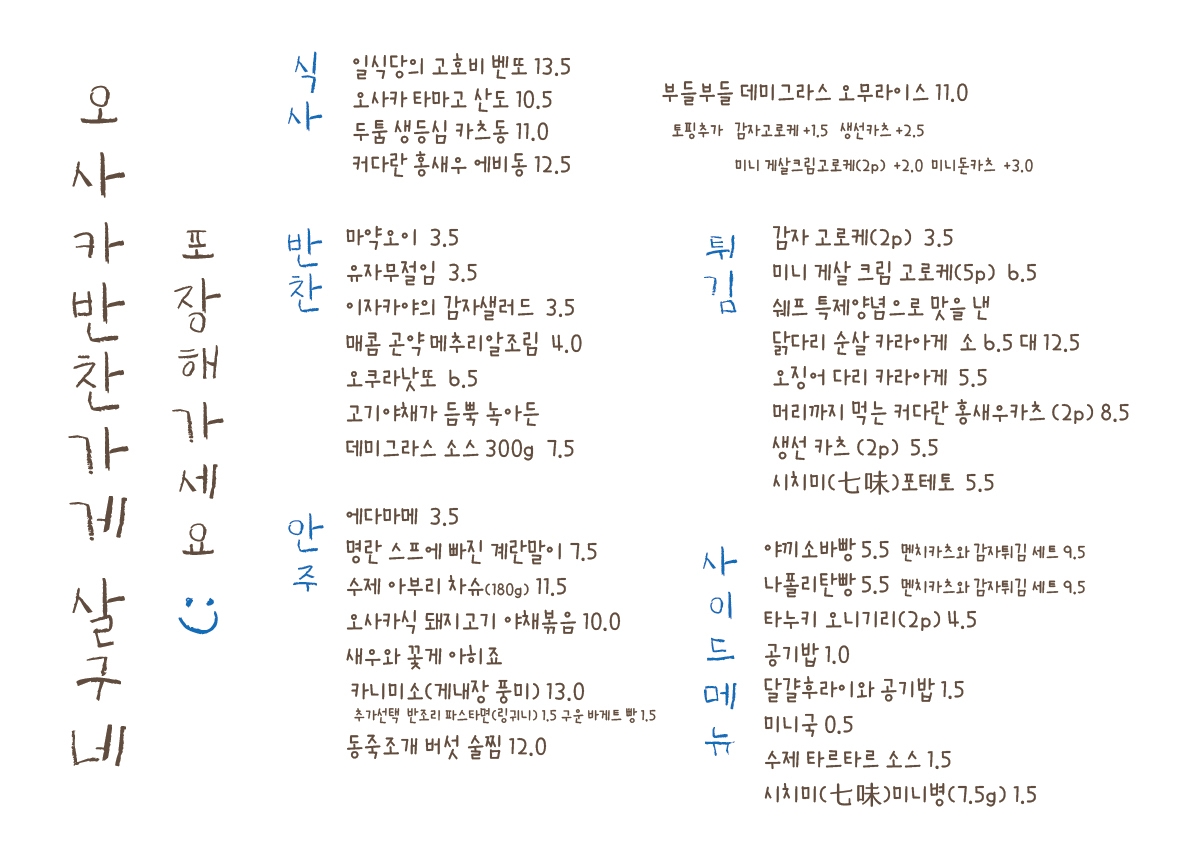 오사카반찬가게 살구네
포장해가세요
식사
일식당의 고호비 벤또 13.5
오사카 타마고 산도 10.5
두툼 생등심 카츠동 11.0
커다란 홍새우 에비동 12.5
부들부들 데미그라스 오무라이스 11.0
토핑추가 감자고로케 +1.5 생선카츠 +2.5
미니 게살크림고로케(2p) +2.0 미니돈카츠 +3.0
반찬
마약오이 3.5
유자무절임 3.5
이자카야의 감자샐러드 3.5
매콤 곤약 메추리알조림 4.0
오쿠라낫또 6.5
고기야채가 듬뿍 녹아든
데미그라스 소스 300g 7.5
튀김
감자 고로케(2p) 3.5
미니 게살 크림 고로케(5p) 6.5
쉐프 특제양념으로 맛을 낸
닭다리 순살 카라아게 소 6.5 대 12.5
오징어 다리 카라아게 5.5
머리까지 먹는 커다란 홍새우카츠 (2p) 8.5
생선 카츠 (2p) 5.5
시치미(七味)포테토 5.5
안주
에다마메 3.5
명란 스프에 빠진 계란말이 7.5
수제 아부리 차슈(180g) 11.5
오사카식 돼지고기 야채볶음 10.0
새우와 꽃게 아히죠
카니미소(게내장 풍미) 13.0
추가선택 반조리 파스타면(링귀니) 1.5 구운 바게트 빵 1.5
동죽조개 버섯 술찜 12.0
사이드메뉴
야끼소바빵 5.5 멘치카츠와 감자튀김 세트 9.5
나폴리탄빵 5.5 멘치카츠와 감자튀김 세트 9.5
타누키 오니기리(2p) 4.5
공기밥 1.0
달걀후라이와 공기밥 1.5
미니국 0.5
수제 타르타르 소스 1.5
시치미(七味)미니병(7.5g) 1.5